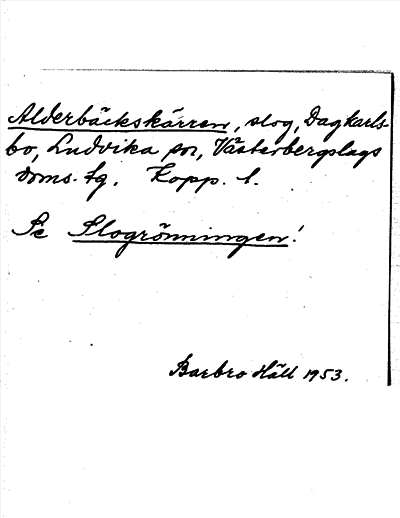 Alderbäckskärren, slog, Dagkarls-
bo, Ludvika sn, Västerbergslags
doms. tg. Kopp. l.
Se Slogrönningen!
Barbro Häll 1953.